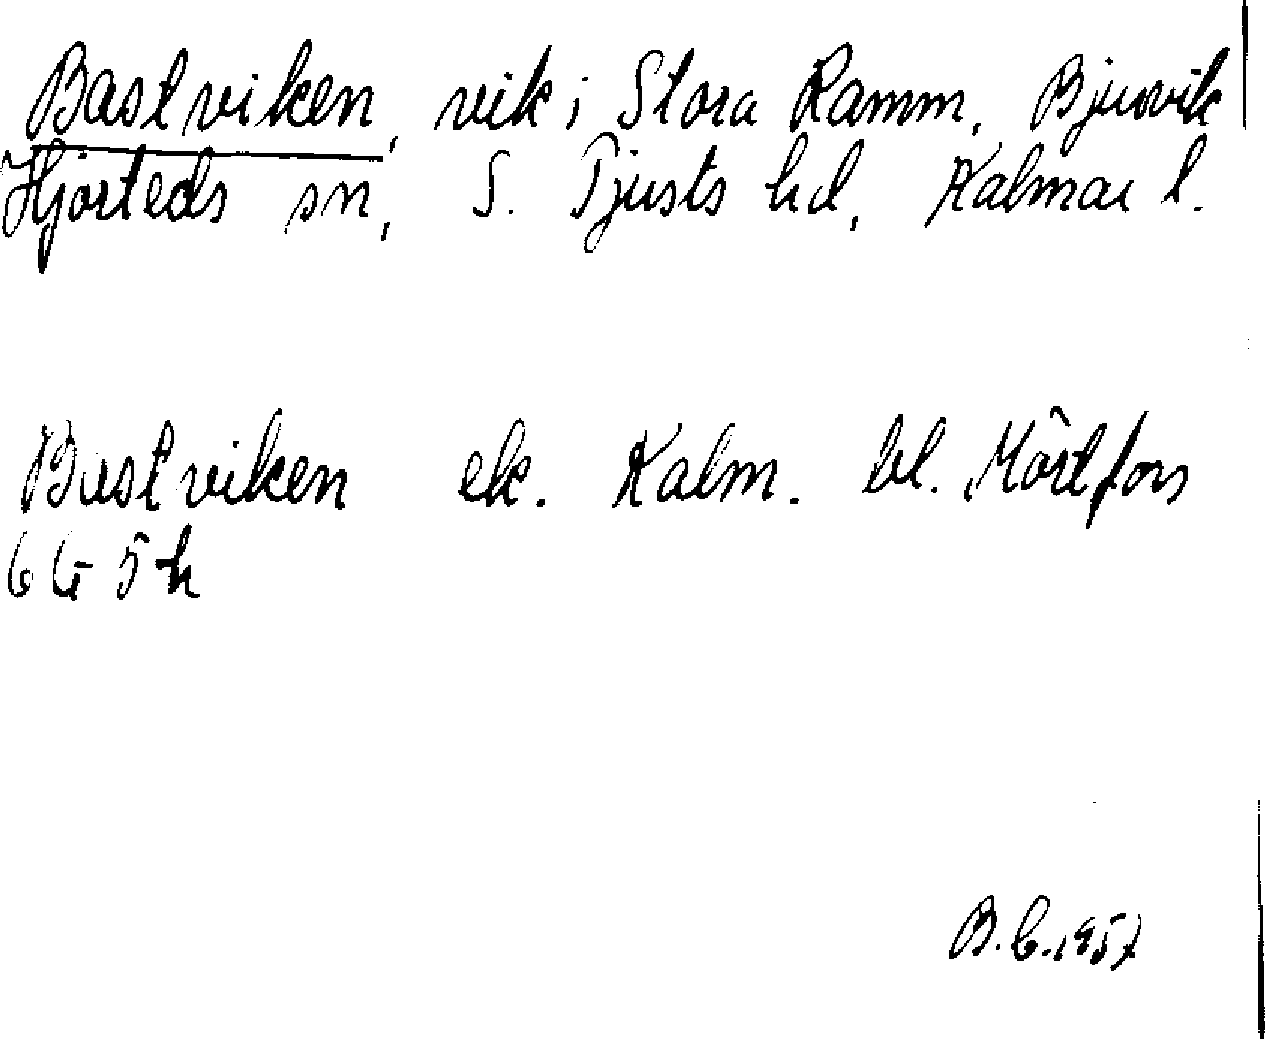 Bastviken, vik i Stora Ramm, Bjursvik
Hjorteds sn, S. Tjusts hd, Kalmar l.
Bastviken ek. Kalm. bl. Mörtfors
6 G 5 h
B.C. 1957